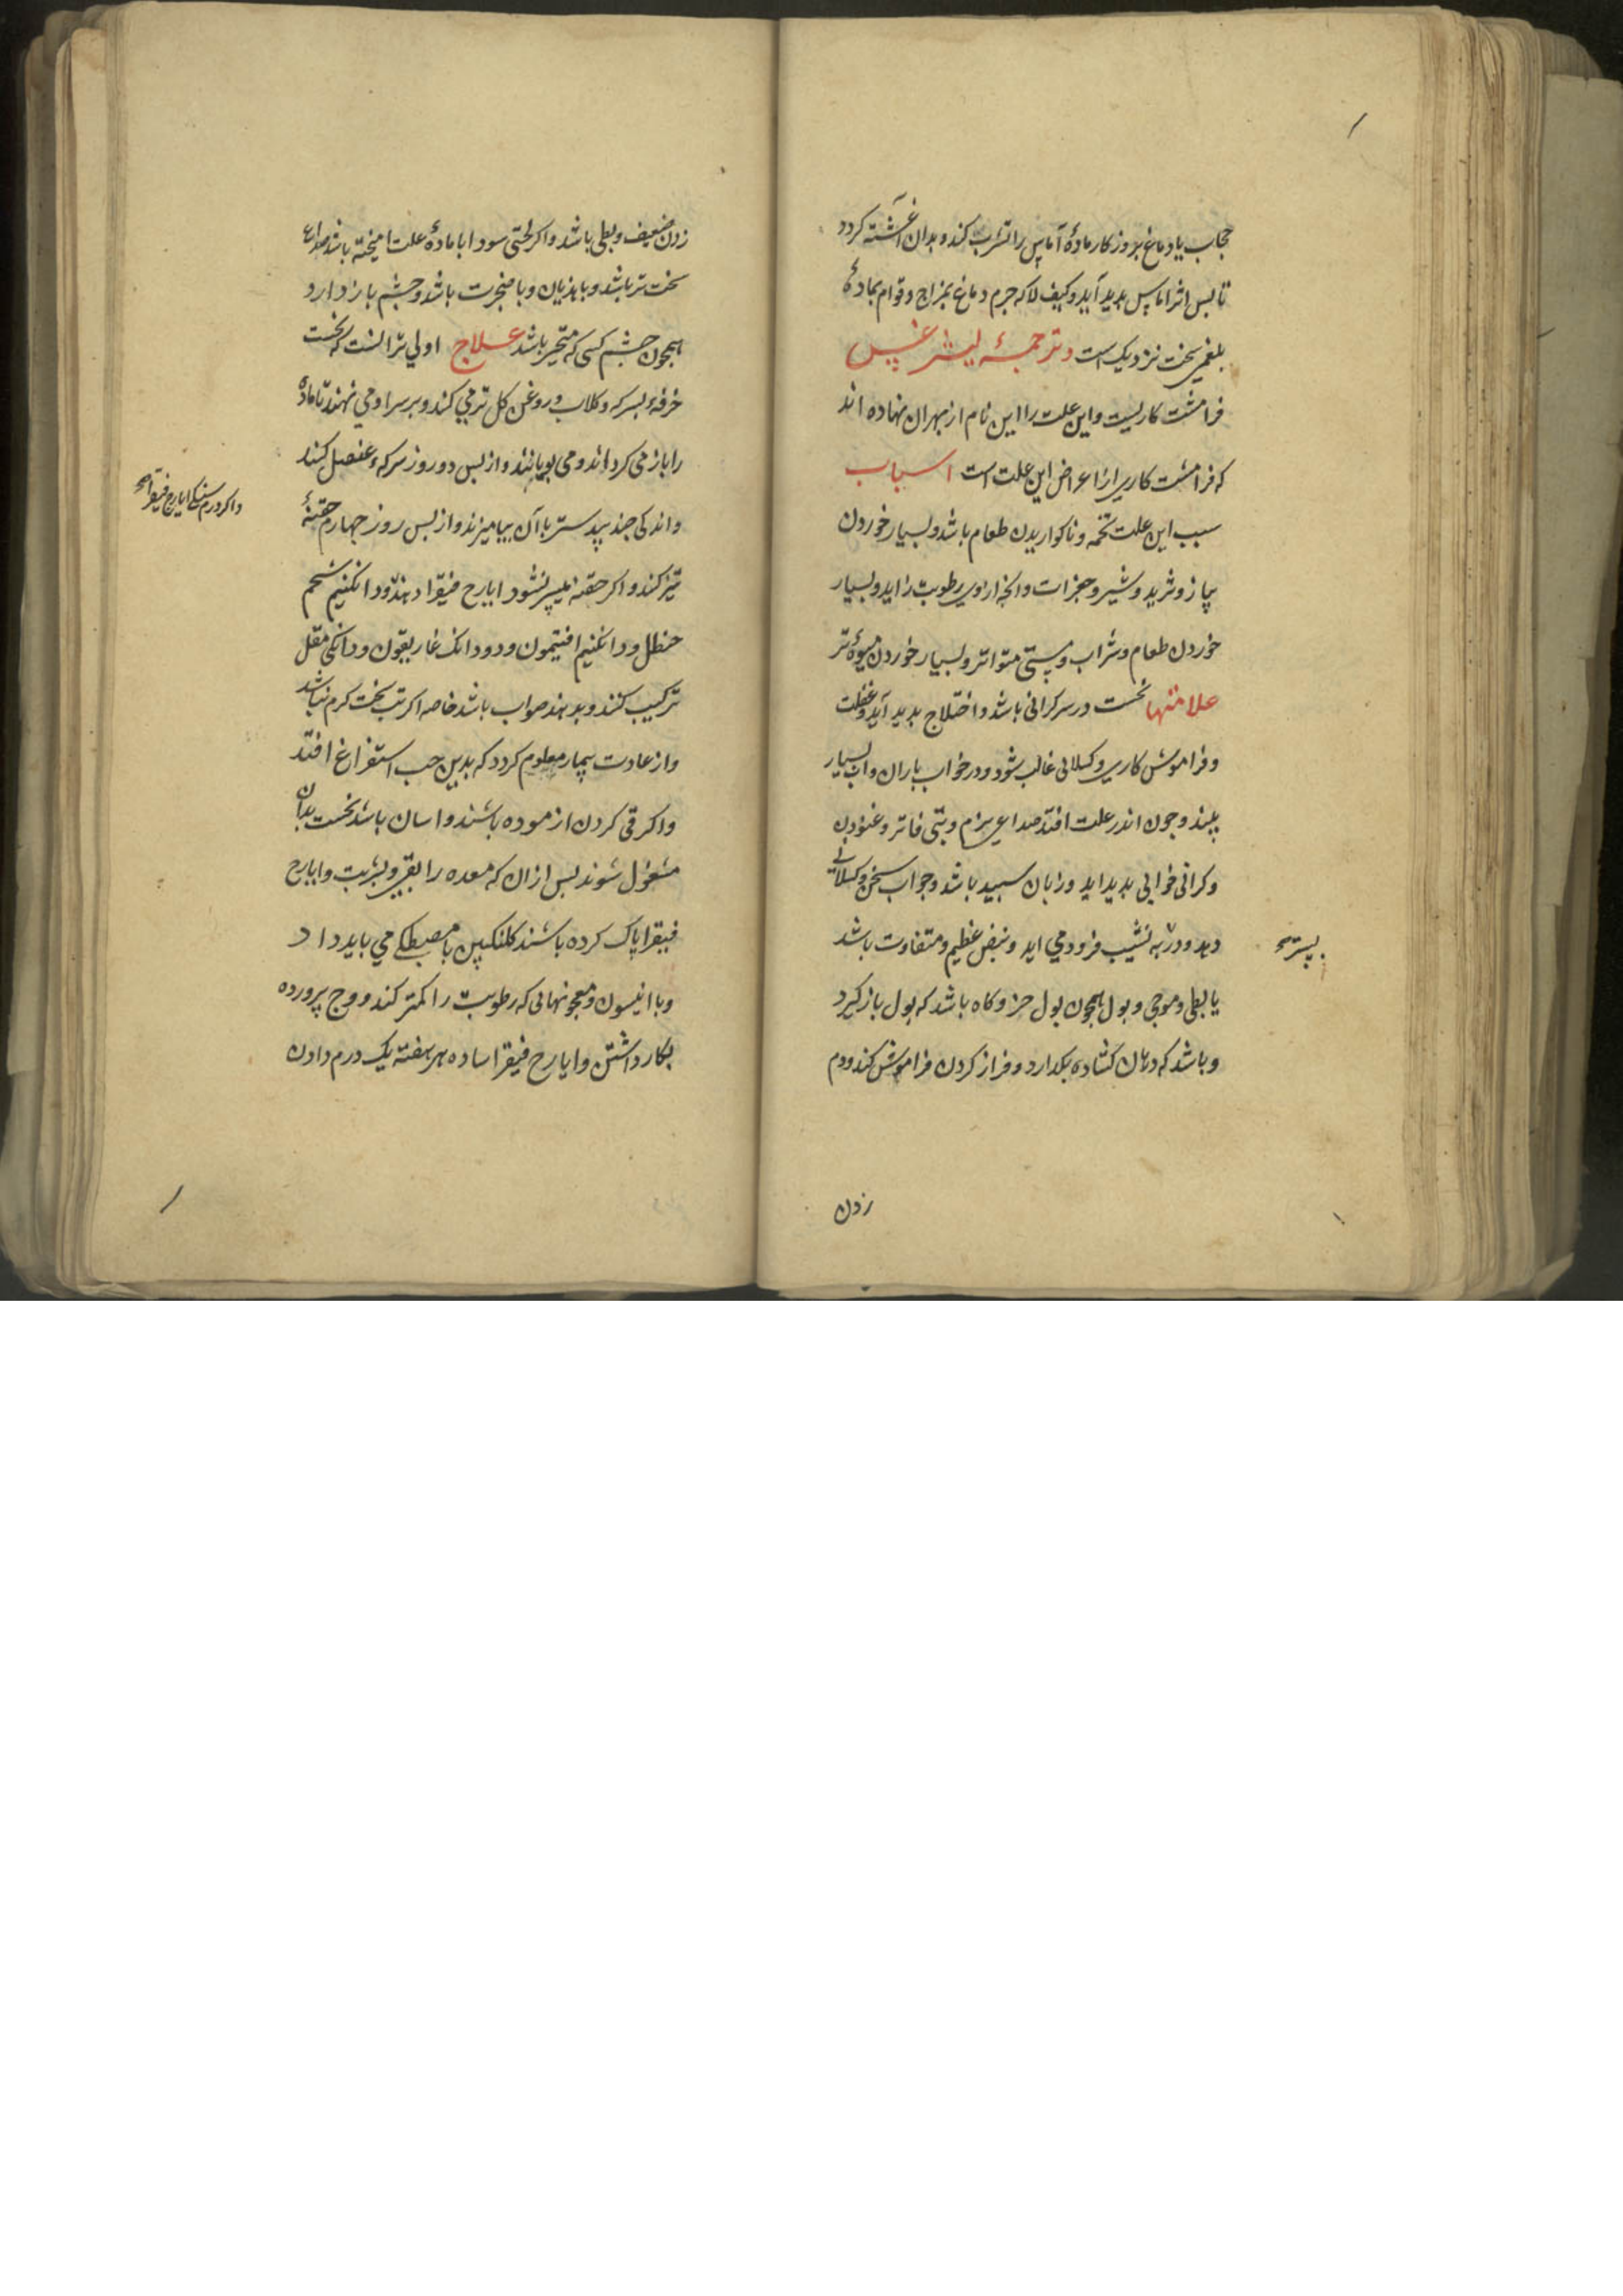 حجاب یا دماغ بروزکار مادهٔ آماس را تشرب کند و بدان آغشته کردد
تا بس اثر اماس بدید آید و کیف لا که جرم دماغ بمزاج و قوام بمادهٔ
بلغمی سخت نزدیک است و ترجمهٔ لیثرغس
فرامشت کاریست و این علت را این نام از بهر ان نهاده اند
که فرامشت کاری از اعراض این علت است اسباب
سبب این علت تخمه و ناکواریدن طعام باشد و بسیار خوردن
پیاز و ثرید و شیر و جغرات و انچه ازوی رطوبت زاید و بسیار
خوردن طعام و شراب و مستی متواتر و بسیار خوردن میوهٔ تر
علامتها نخست در سر کرانی باشد و اختلاج بدید آید و غفلت
و فراموش کاری و کسلانی غالب شود و در خواب باران و آب بسیار
بیند و جون اندر علت افتد صداعی نرم و تبی فاتر و غنودن
و کرانی خوابی بدید اید و زبان سبید باشد و جواب سخن بکسلانی
دهد و در ته نشیب فرود می اید و نبض عظیم و متفاوت باشد
بستر
یا بطی و موجی و بول همجون بول خر و کاه باشد که بول باز کیرد
و باشد که دهان کشاده بکدارد و فراز کردن فراموش کند و دم
زدن
زدن ضعیف و بطی باشد و اکر لختی سودا با مادهٔ علت امیخته باشد صداع
سخت تر باشد و با هذیان و با ضجرت باشد و جشم باز دارد
همجون جشم کسی که متحیر باشد علاج اولی تر انست که نخست
خرقهٔ بسرکه و کلاب و روغن کل تر می کنند و بر سر او می نهند تا ماده
را باز می کرداند و می بویانند و از بس دو روز سرکهٔ عنصل کنند
و اندکی جند بیدستر با آن بیامیزند و از بس روز جهارم حقنهٔ
واکر درم سنکی ایارج فیقرا
تیز کنند و اکر حقنه میسر نشود ایارج فیقرا دهند و دانکنیم شحم
حنظل و دانکنیم افتیمون و دو دانک غاریقون و دانکی مقل
ترکیب کنند و بدهند صواب باشد خاصه اکر تب سخت کرم نباشد
و از عادت بیمار معلوم کردد که بدین حب استفراغ افتد
و اکر قی کردن ازموده باشند و اسان باشد نخست بدان
مشغول شوند بس ازان که معده را بقی و بشربت و ایارج
فیقرا پاک کرده باشند کلنکبین با مصطکی می باید داد
و با انیسون و معجونهائی که رطوبت را کمتر کند و وج پرورده
بکار داشتن و ایارج فیقرا ساده هر هفته یک درم دادن